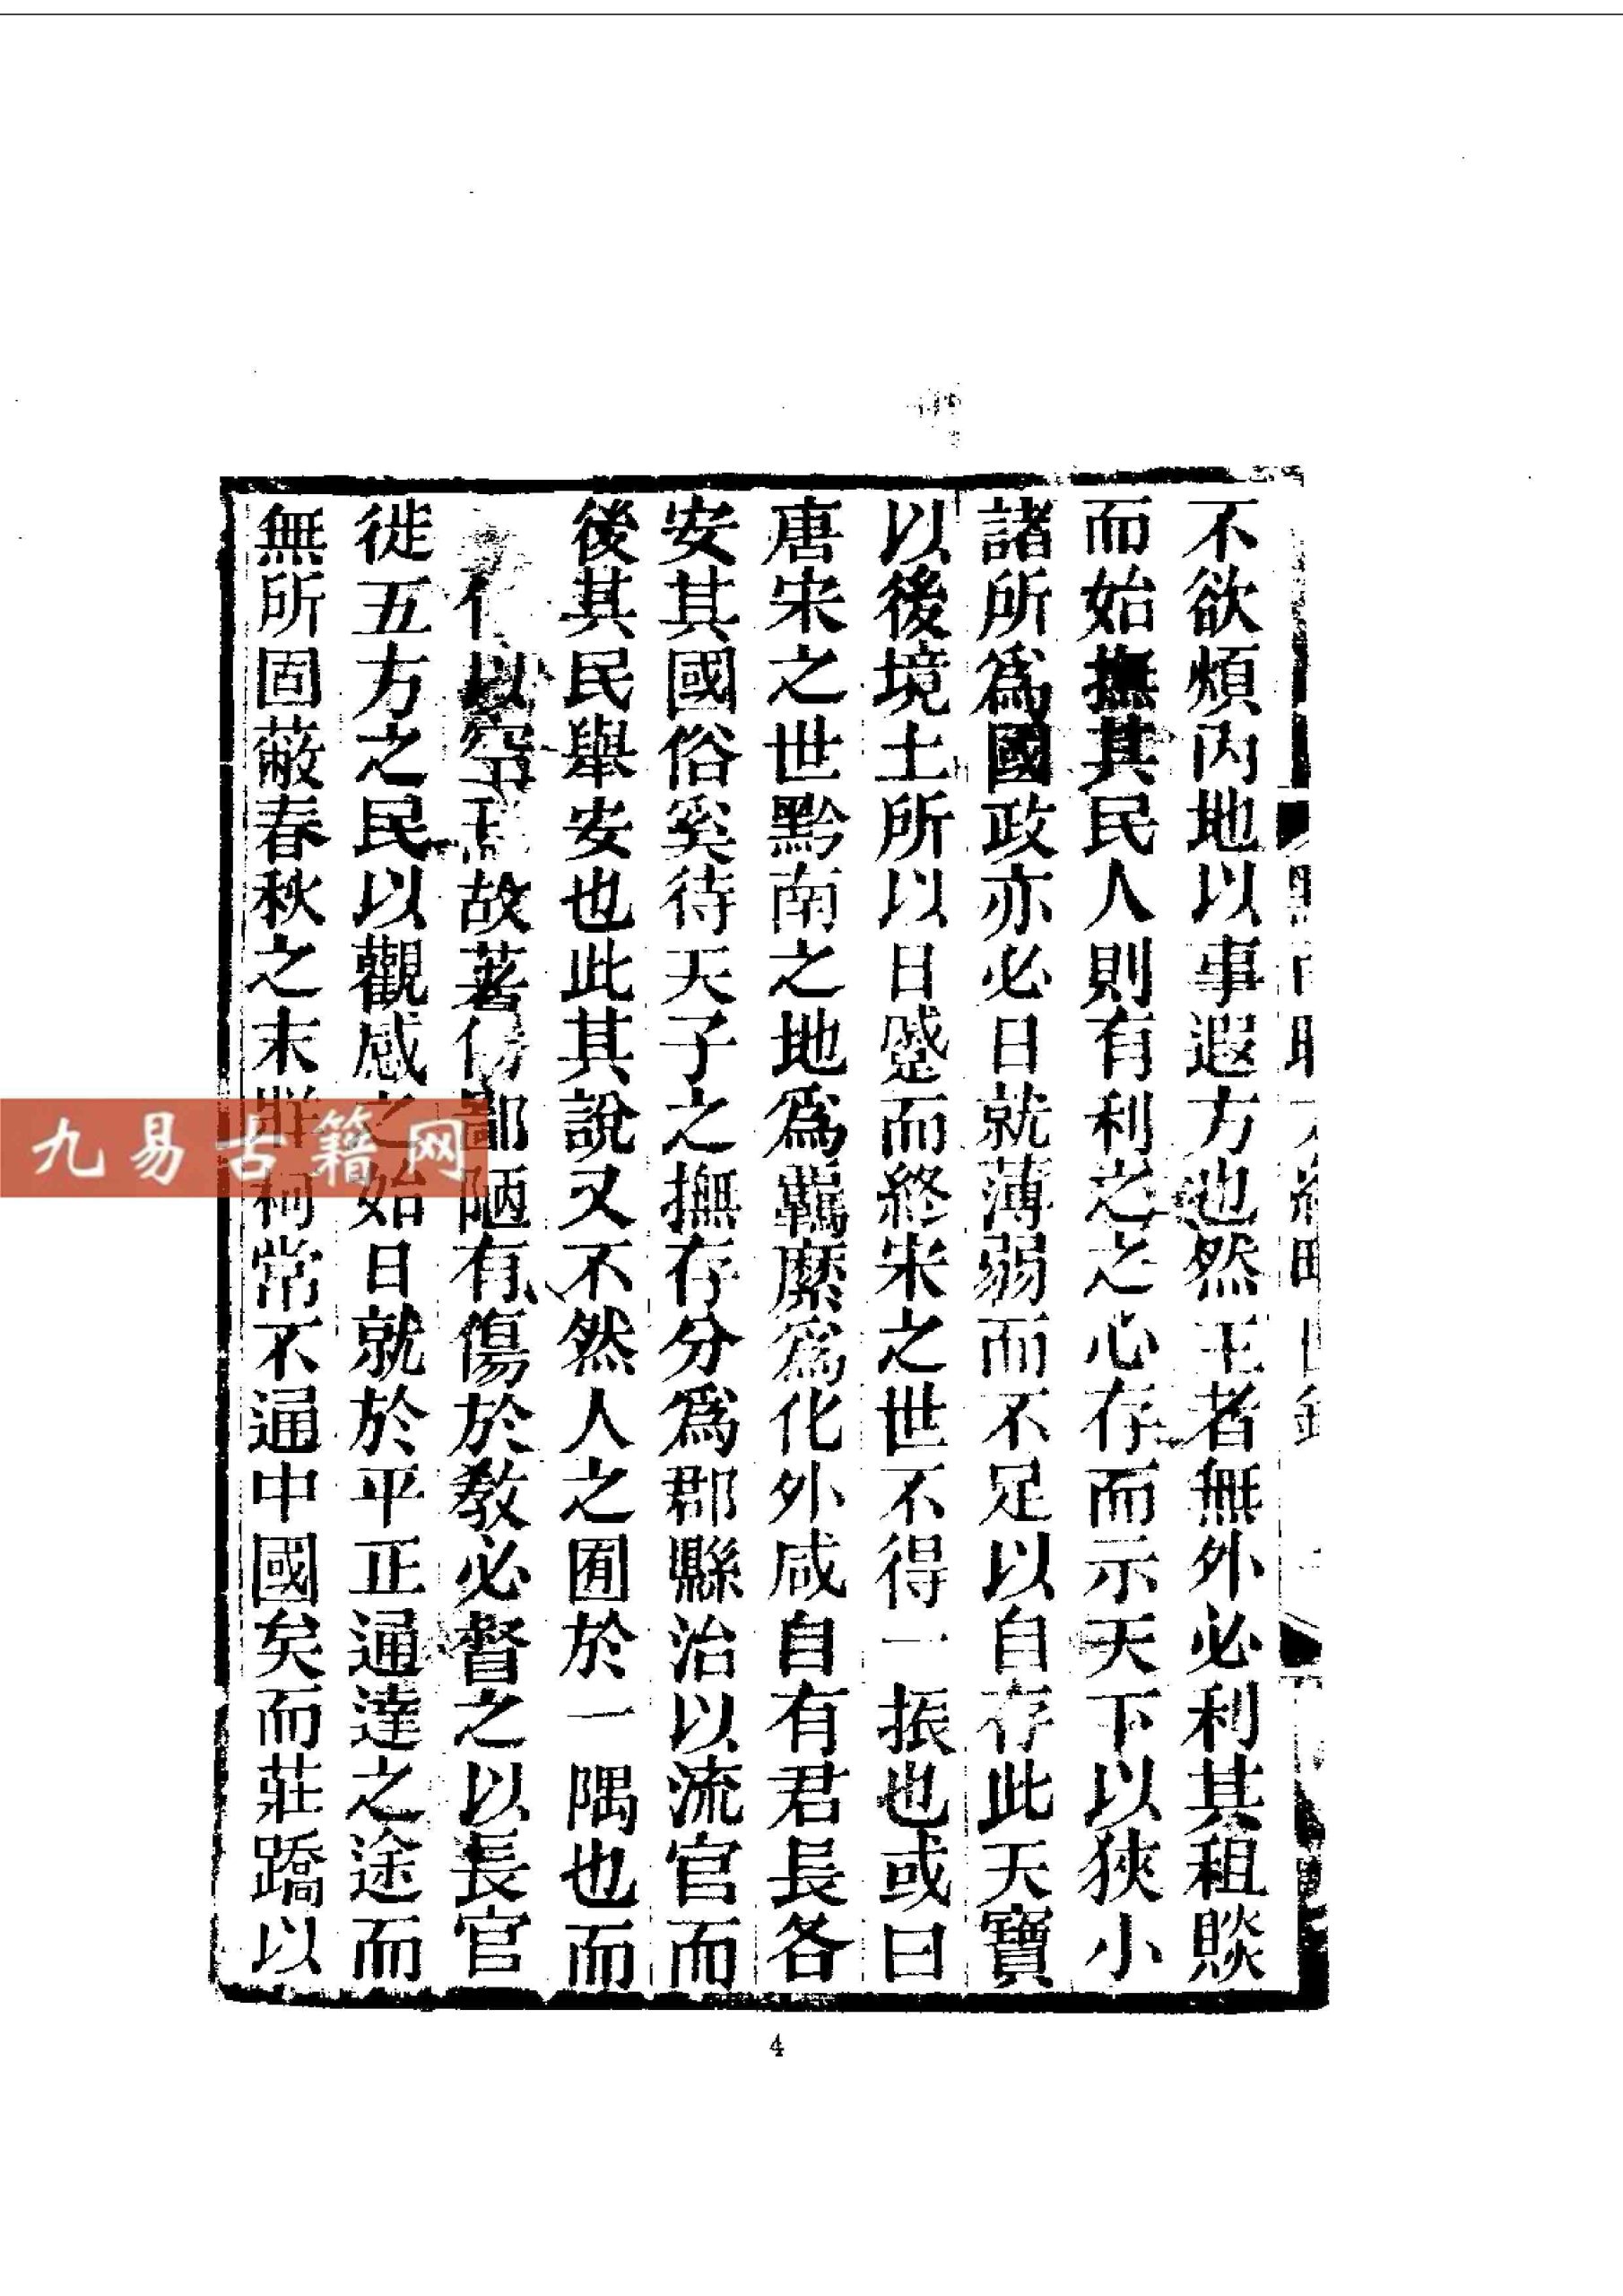 不欲煩內地以事遐方也然王者無外必利其租賧
而始撫其民人則有利之之心存而示天下以狹小
諸所爲國政亦必日就薄弱而不足以自存此天寶
以後境土所以日蹙而終宋之世不得一振也或曰
唐宋之世黔南之地爲羈縻爲化外咸自有君長各
安其國俗奚待天子之撫存分爲郡縣治以流官而
後其民舉安也此其說又不然人之囿於一隅也而
以空故著鄙陋有傷於敎必督之以長官
徙五方之民以觀感之始日就於平正通達之途而
無所固蔽春秋之末牂柯常不通中國矣而莊蹻以
九易古籍网
4